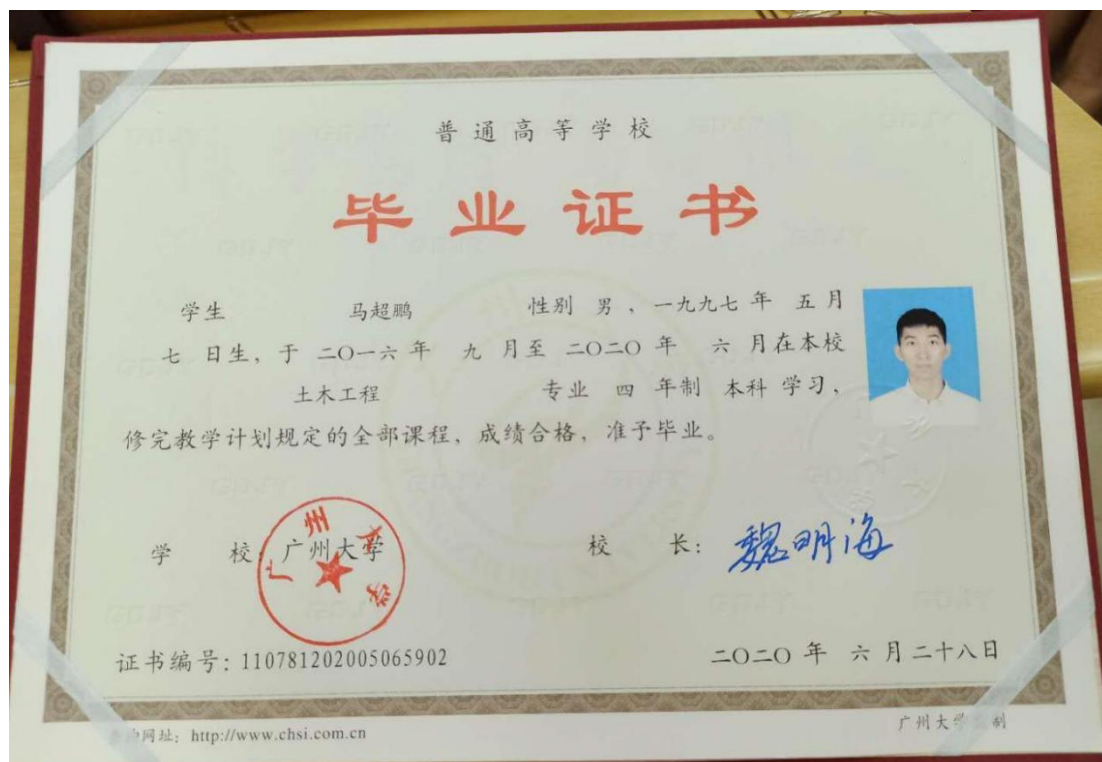 普通高等学校
毕业证书
学生 马超鹏 性别 男，一九九七 年 五 月
七 日生，于 二〇一六 年 九 月至 二〇二〇 年 六 月在本校
土木工程 专业 四 年制 本科 学习，
修完教学计划规定的全部课程，成绩合格，准予毕业。
学 校：广州大学 校 长：魏明海
广州大学
证书编号：110781202005065902 二〇二〇 年 六 月二十八日
网址：http://www.chsi.com.cn 广州大学 制